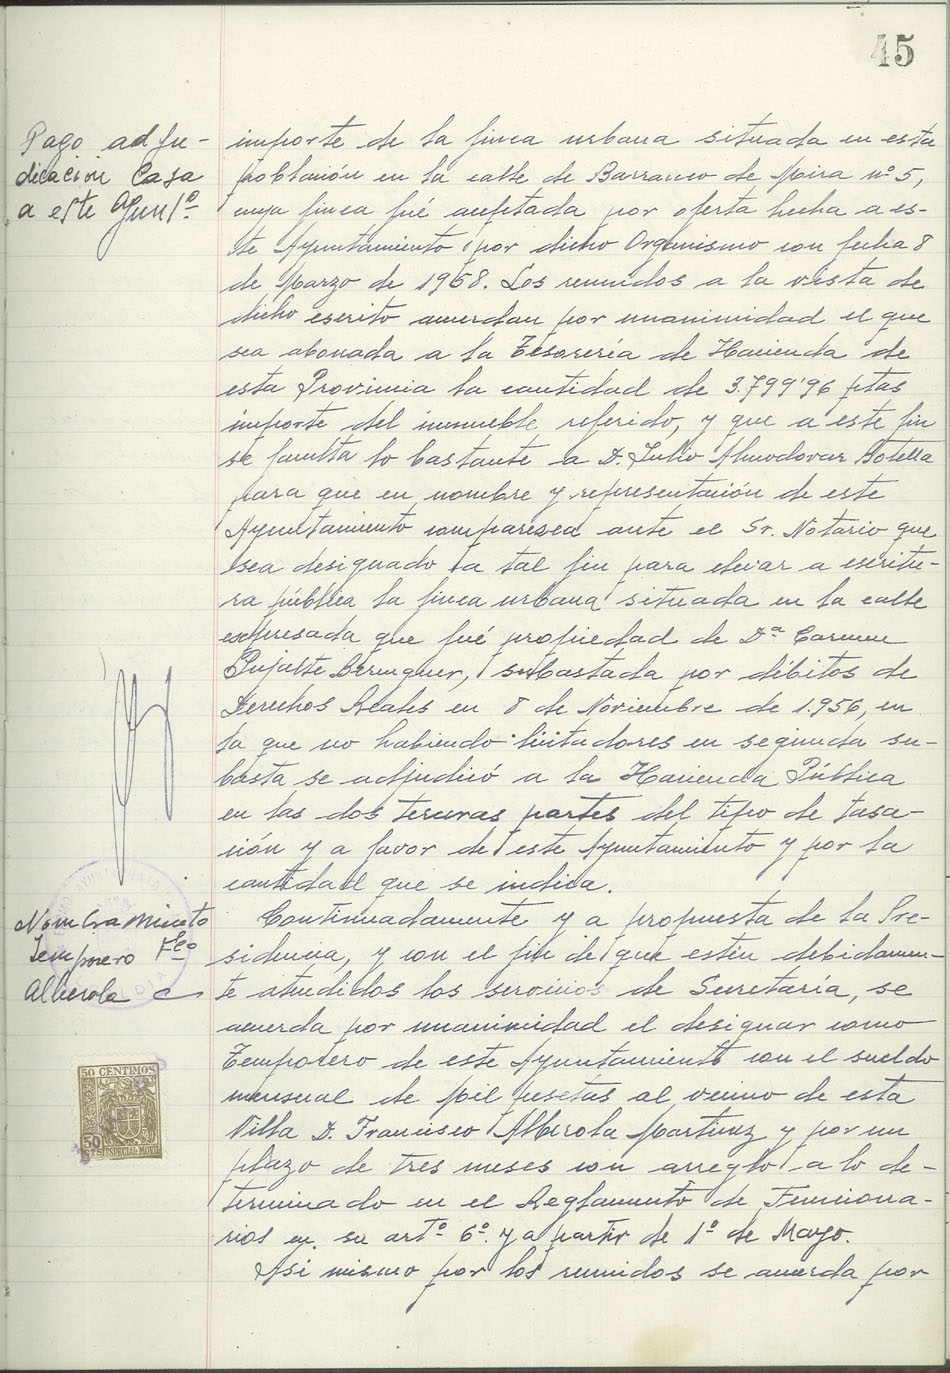 45
Pago adju-
dicación Casa
a este Ayuntº.
importe de la finca urbana situada en esta
población en la calle de Barranco de Moira nº 5,
cuya finca fué aceptada por oferta hecha a es-
te Ayuntamiento por dicho Organismo con fecha 8
de Marzo de 1958. Los reunidos a la vista de
dicho escrito acuerdan por unanimidad el que
sea abonada a la Tesorería de Hacienda de
esta Provincia la cantidad de 3.799'96 ptas
importe del inmueble referido, y que a este fin
se faculta lo bastante a D. Julio Almodovar Botella
para que en nombre y representación de este
Ayuntamiento comparezca ante el Sr. Notario que
sea designado a tal fin para elevar a escritu-
ra pública la finca urbana situada en la calle
expresada que fué propiedad de Dª Carmen
Pujalte Berenguer, subastada por débitos de
Derechos Reales en 8 de Noviembre de 1.956, en
la que no habiendo licitadores en segunda su-
basta se adjudicó a la Hacienda Pública
en las dos terceras partes del tipo de tasa-
ción y a favor de este Ayuntamiento y por la
cantidad que se indica.
Nombramineto
Temporero Fco
Alberola
Continuadamente y a propuesta de la Pre-
sidencia, y con el fin de que estén debidamen-
te atendidos los servicios de Secretaría, se
acuerda por unanimidad el designar como
Temporero de este Ayuntamiento con el sueldo
mensual de Mil pesetas al vecino de esta
Villa D. Francisco Alberola Martinez y por un
plazo de tres meses con arreglo a lo de-
terminado en el Reglamento de Funciona-
rios en su artº 6º. y a partir de 1º de Mayo.
Asi mismo por los reunidos se acuerda por
50 CENTIMOS
50
CTS. ESPECIAL MOVIL